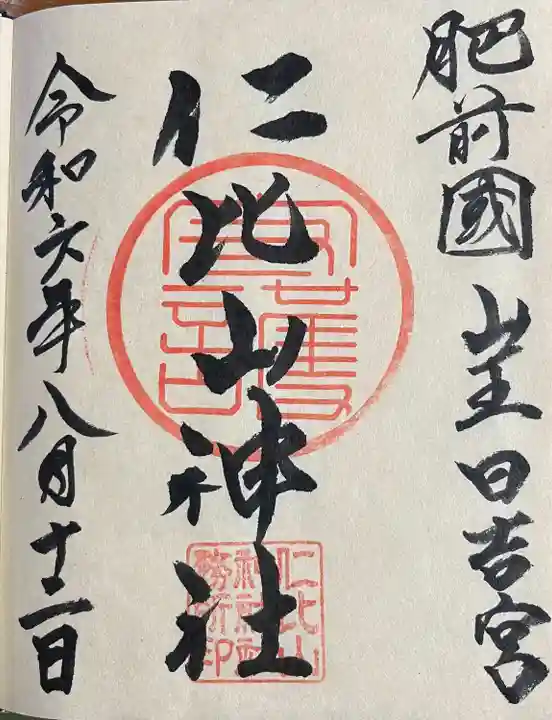 肥前國 山王日吉宮
仁比山神社
仁比山
神社社
務所印
令和六年八月十二日